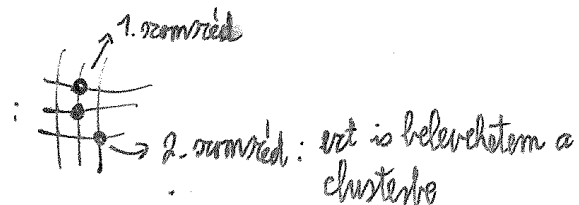 1. szomszéd
:
2. szomszéd : ezt is belevehetem a
clusterbe